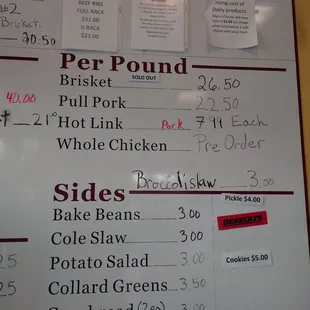 #2
Bruket.
20.50
BEEF RIBS
FULL RACK
$32.00
½ RACK
$23.00
rising cost of
Dairy products
40.00
21.00
Per Pound
Brisket SOLD OUT 26.50
Pull Pork 22.50
Hot Link Pork 7.99 Each
Whole Chicken Pre Order
Broccolislaw 3.00
Sides
Pickle $4.00
Bake Beans 3.00
DESSERTS
Cole Slaw 3.00
Potato Salad 3.00
Cookies $5.00
Collard Greens 3.50
3.00